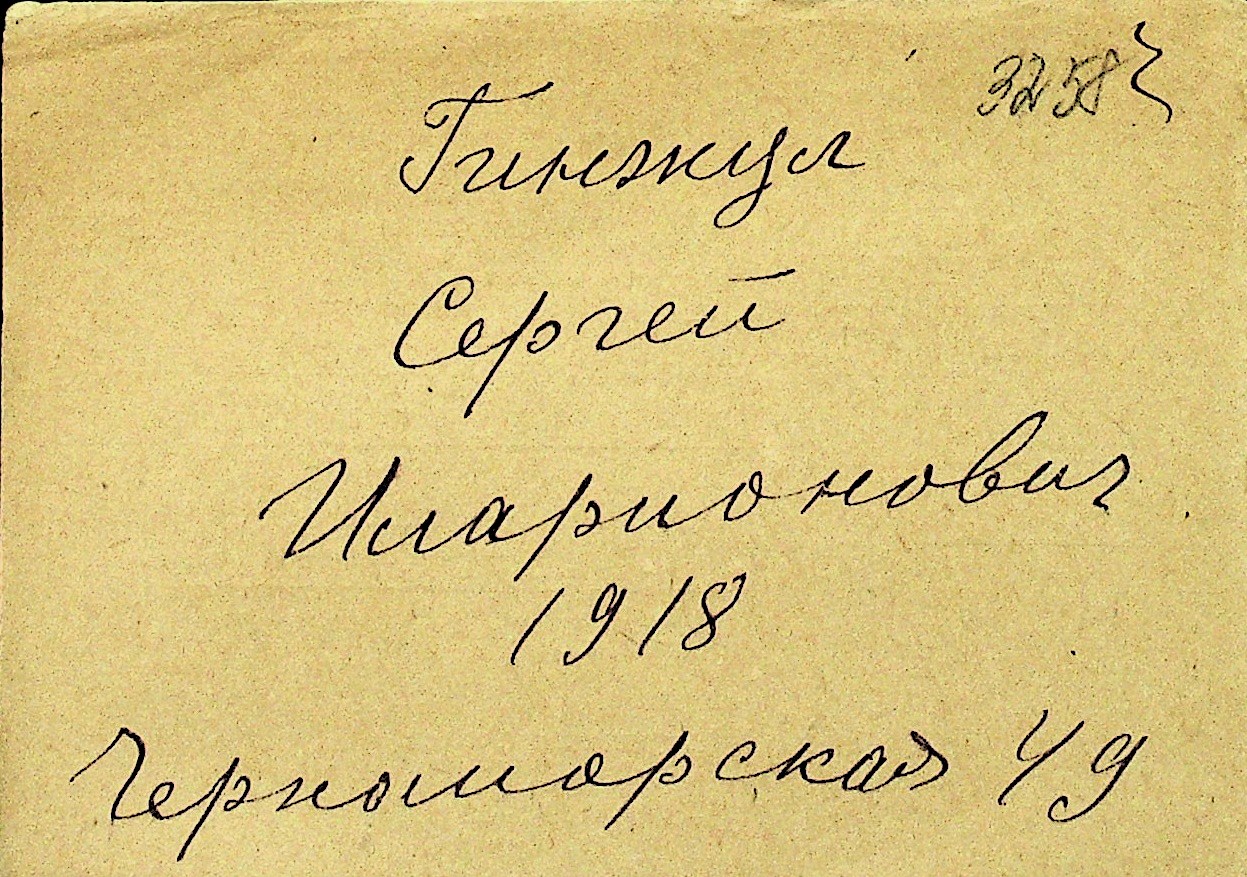 3258
Гинжул
Сергей
Иларионович
1918
Черноморская 49